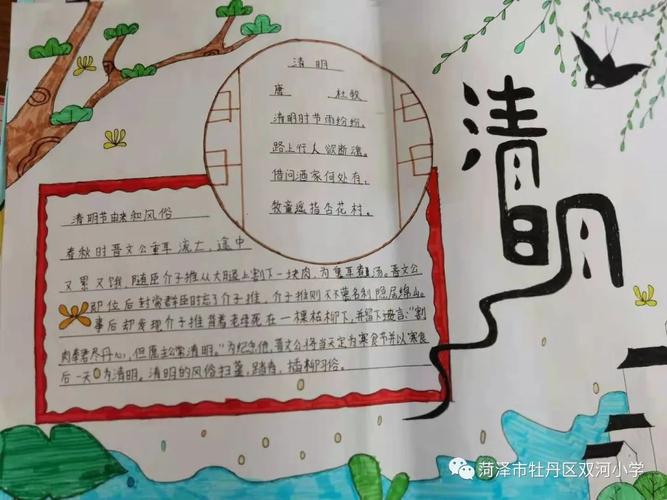 清明
唐 杜牧
清明时节雨纷纷,
路上行人欲断魂。
借问酒家何处有,
牧童遥指杏花村。
清明
清明节由来和风俗
春秋时晋文公重耳流亡,途中
又累又饿,随臣介子推从大腿上割下一块肉,为重耳煮汤。晋文公
即位后封常群臣时忘了介子推,介子推则不慕名利隐居绵山。
事后却发现介子推背着老母死在一棵枯柳下,并留下遗言:“割
肉奉君尽丹心,但愿主公常清明。”为纪念他,晋文公将当天定为寒食节并以寒食
后一天为清明。清明的风俗扫墓,踏青,插柳习俗。
菏泽市牡丹区双河小学